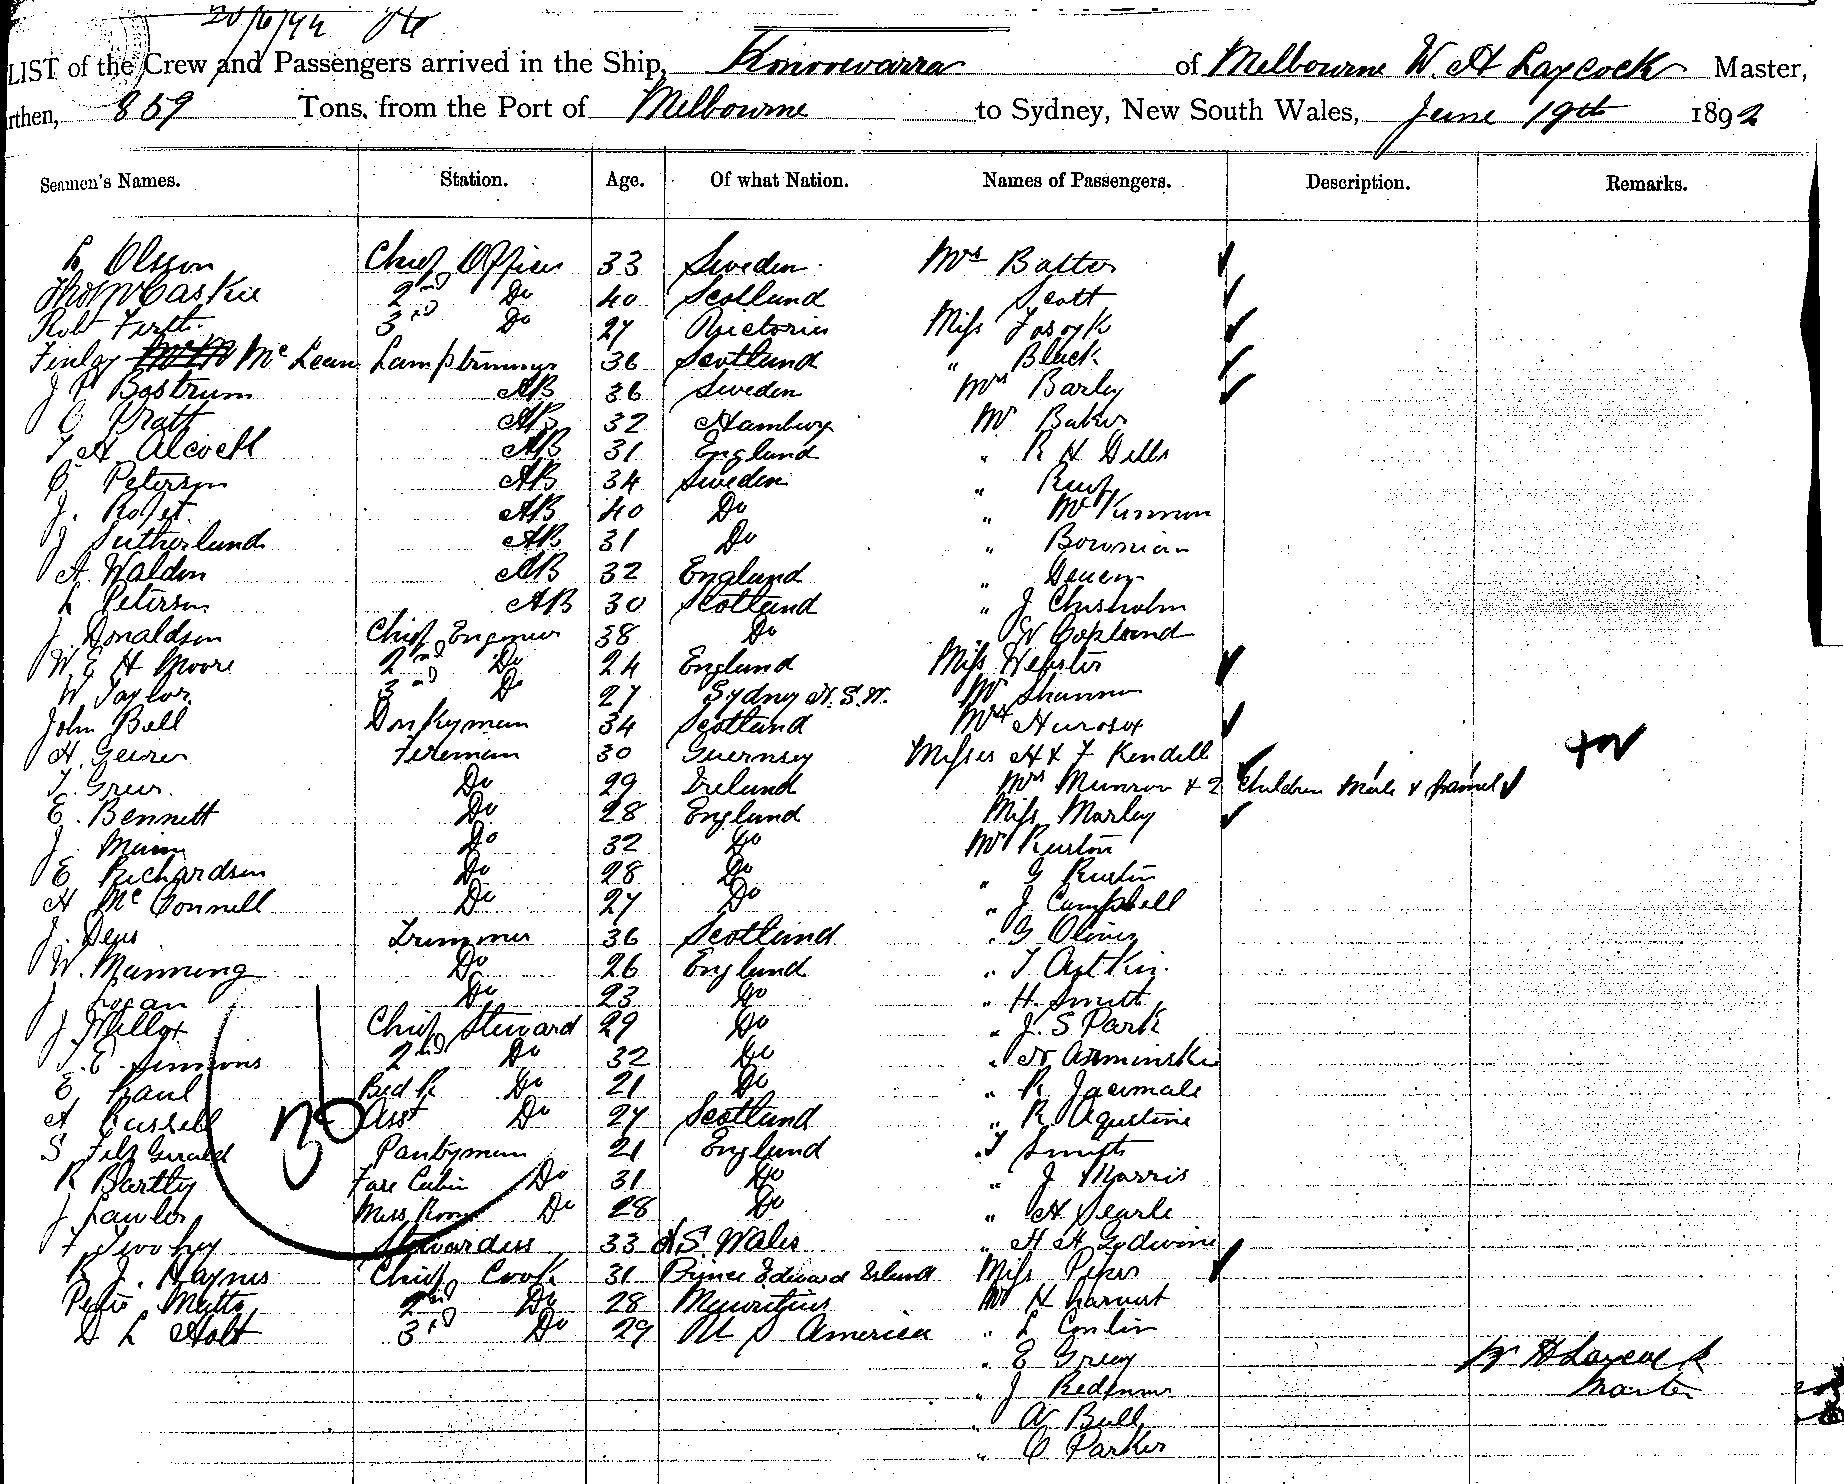 20/6/92
LIST of the Crew and Passengers arrived in the Ship, Konoowarra of Melbourne W. H Laycock Master,
rthen, 859 Tons, from the Port of Melbourne to Sydney, New South Wales, June 19th 1892
Seamen's Names. Station. Age. Of what Nation. Names of Passengers. Description. Remarks.
L Olsson Chief Officer 33 Sweden Mrs Batter
Thos McCaskie 2nd Do 40 Scotland Scott
Robt Firth 3rd Do 27 Victoria Miss
Finlay McLean Lamptrimmer 36 Scotland " Black
J P Bostrum AB 36 Sweden Mrs Barley
C Pratt AB 32 Hamburg Mr Baker
T H Alcock AB 31 England " R H Dells
C Peterson AB 34 Sweden "
J. AB 40 Do " McKinnon
J Sutherland AB 31 Do " Bowman
A. Waldon AB 32 England "
L Peterson AB 30 Scotland " J Chisholm
J Donaldson Chief Engineer 38 Do W Copland
W E H Moore 2nd Do 24 England Miss Webster
W Taylor 3rd Do 27 Sydney N.S.W. Mr Shannon
John Bell Donkeyman 34 Scotland Mrs
H. Fireman 30 Guernsey Misses H & F Kendell
T. Greer Do 29 Ireland Mrs Munrow & 2 Children Male &
E. Bennett Do 28 England Miss Marley
J. Mann Do 32 Do Mr Ruston
E Richardson Do 28 Do " G Rustin
H McConnell Do 27 Do " J Campbell
J. Trimmer 36 Scotland " G Oliver
W. Manning Do 26 England " T Aitkin.
J Logan Do 23 Do " H. Smith
J Chief Steward 29 Do " J. S Park
T. E. Simmons 2nd Do 32 Do " Arminski
E Paul Bed R Do 21 Do " R
A Russell Asst Do 27 Scotland " R Agustine
S FitzGerald Pantryman 21 England " T Smith
R Bartley Fore Cabin Do 31 Do " J Morris
J Lawler Mess Room Do 28 Do " H Searle
T Twohey Stewardess 33 N.S. Wales " H H Godwine
R J. Haynes Chief Cook 31 Prince Edward Island Miss Piper
2nd Do 28 Mauritius Mr H
L Holt 3rd Do 29 U S America " L Conlin
" E Grey
" J
" W Bull
" C Parker
W H Laycock
Master